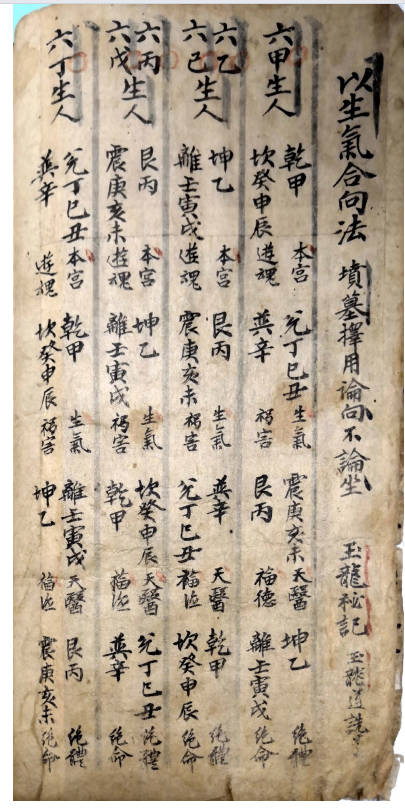 以生氣合向法 墳墓擇用論向不論坐 玉龍秘記 玉龍道
六甲生人
乾甲 本宮 兊丁巳丑 生氣 震庚亥未 天醫 坤乙 絶體
坎癸申辰 遊魂 巽辛 禍害 艮丙 福德 離壬寅戌 絶命
六乙 六己生人
坤乙 本宮 艮丙 生氣 巽辛 天醫 乾甲 絶體
離壬寅戌 遊魂 震庚亥未 禍害 兊丁巳丑 福德 坎癸申辰 絶命
六丙 六戊生人
艮丙 本宮 坤乙 生氣 坎癸申辰 天醫 兊丁巳丑 絶體
震庚亥未 遊魂 離壬寅戌 禍害 乾甲 福德 巽辛 絶命
六丁生人
兊丁巳丑 本宮 乾甲 生氣 離壬寅戌 天醫 艮丙 絶體
巽辛 遊魂 坎癸申辰 禍害 坤乙 福德 震庚亥未 絶命